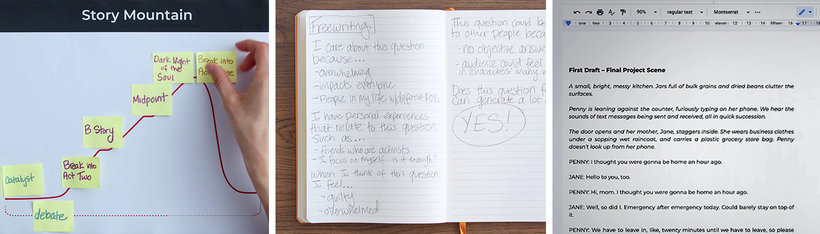 Story Mountain
Dark Night
of the
Soul
Break into
Midpoint
B Story
Break into
Act Two
Catalyst
debate
Freewriting
I care about this question
because...
- overwhelming
- impacts everyone
- People in my life w/different POVs
I have personal experiences
that relate to this question,
such as...
- friends who are activists
- I focus on myself - is it enough?
When I think of this question,
I feel...
- guilty
- overwhelmed
This question could be
to other people beca
- no objective answe
- audience could feel
in characters' many v
Does this question f
Can generate a lot
YES!
90%
regular text
Montserrat
First Draft – Final Project Scene
A small, bright, messy kitchen. Jars full of bulk grains and dried beans clutter the
surfaces.
Penny is leaning against the counter, furiously typing on her phone. We hear the
sounds of text messages being sent and received, all in quick succession.
The door opens and her mother, Jane, staggers inside. She wears business clothes
under a sopping wet raincoat, and carries a plastic grocery store bag. Penny
doesn't look up from her phone.
PENNY: I thought you were gonna be home an hour ago.
JANE: Hello to you, too.
PENNY: Hi, mom. I thought you were gonna be home an hour ago.
JANE: Well, so did I. Emergency after emergency today. Could barely stay on top of
it.
PENNY: We have to leave in, like, twenty minutes until we have to leave, so please